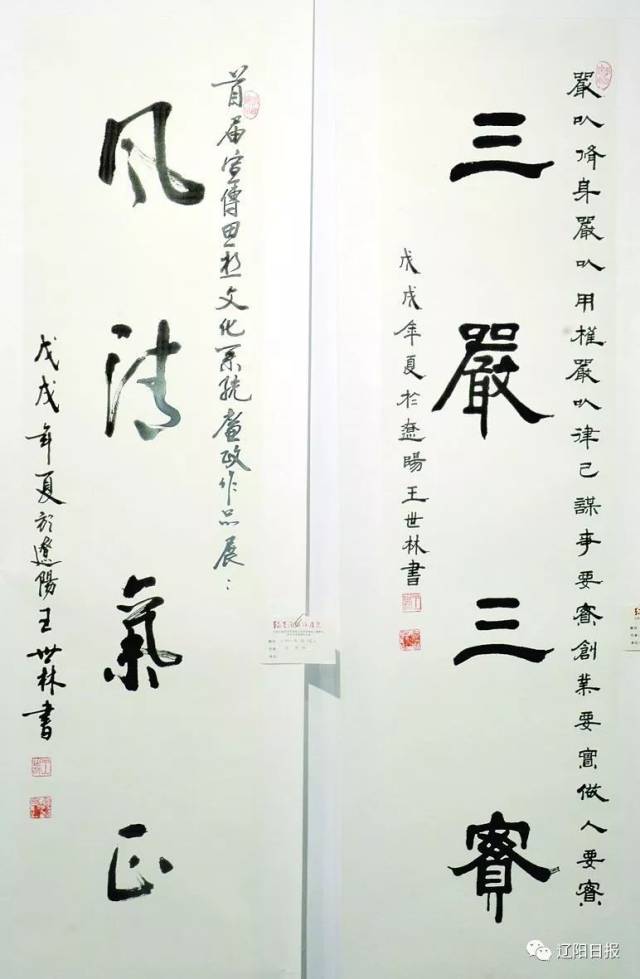 嚴以脩身嚴以用權嚴以律己謀事要實創業要實做人要實
三嚴三實
戊戌年夏於遼陽王世林書
首届宣傳思想文化系統廉政作品展：
风清氣正
戊戌年夏於遼陽王世林書
辽阳日报